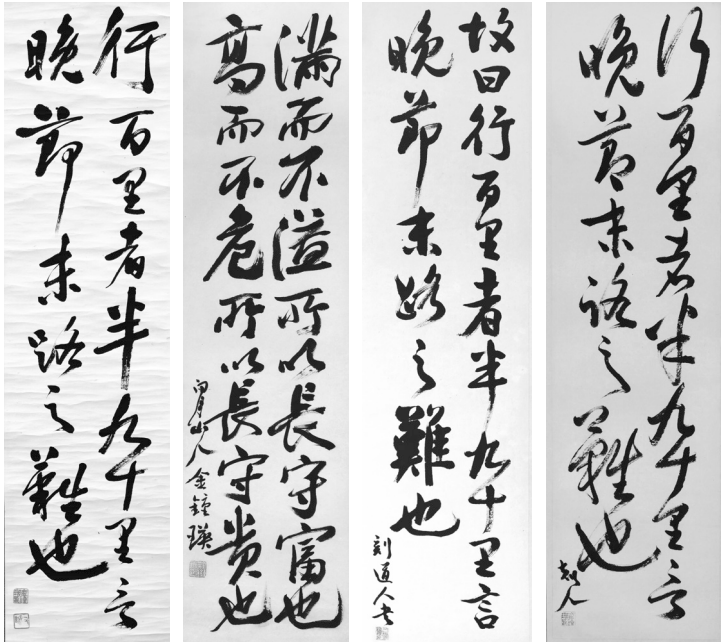 行百里者半九十里言
晚節末路之難也
滿而不溢所以長守富也
高而不危所以長守貴也
山人金鍾瑛
故曰行百里者半九十里言
晚節末路之難也
刻道人書
行百里者半九十里言
晚節末路之難也